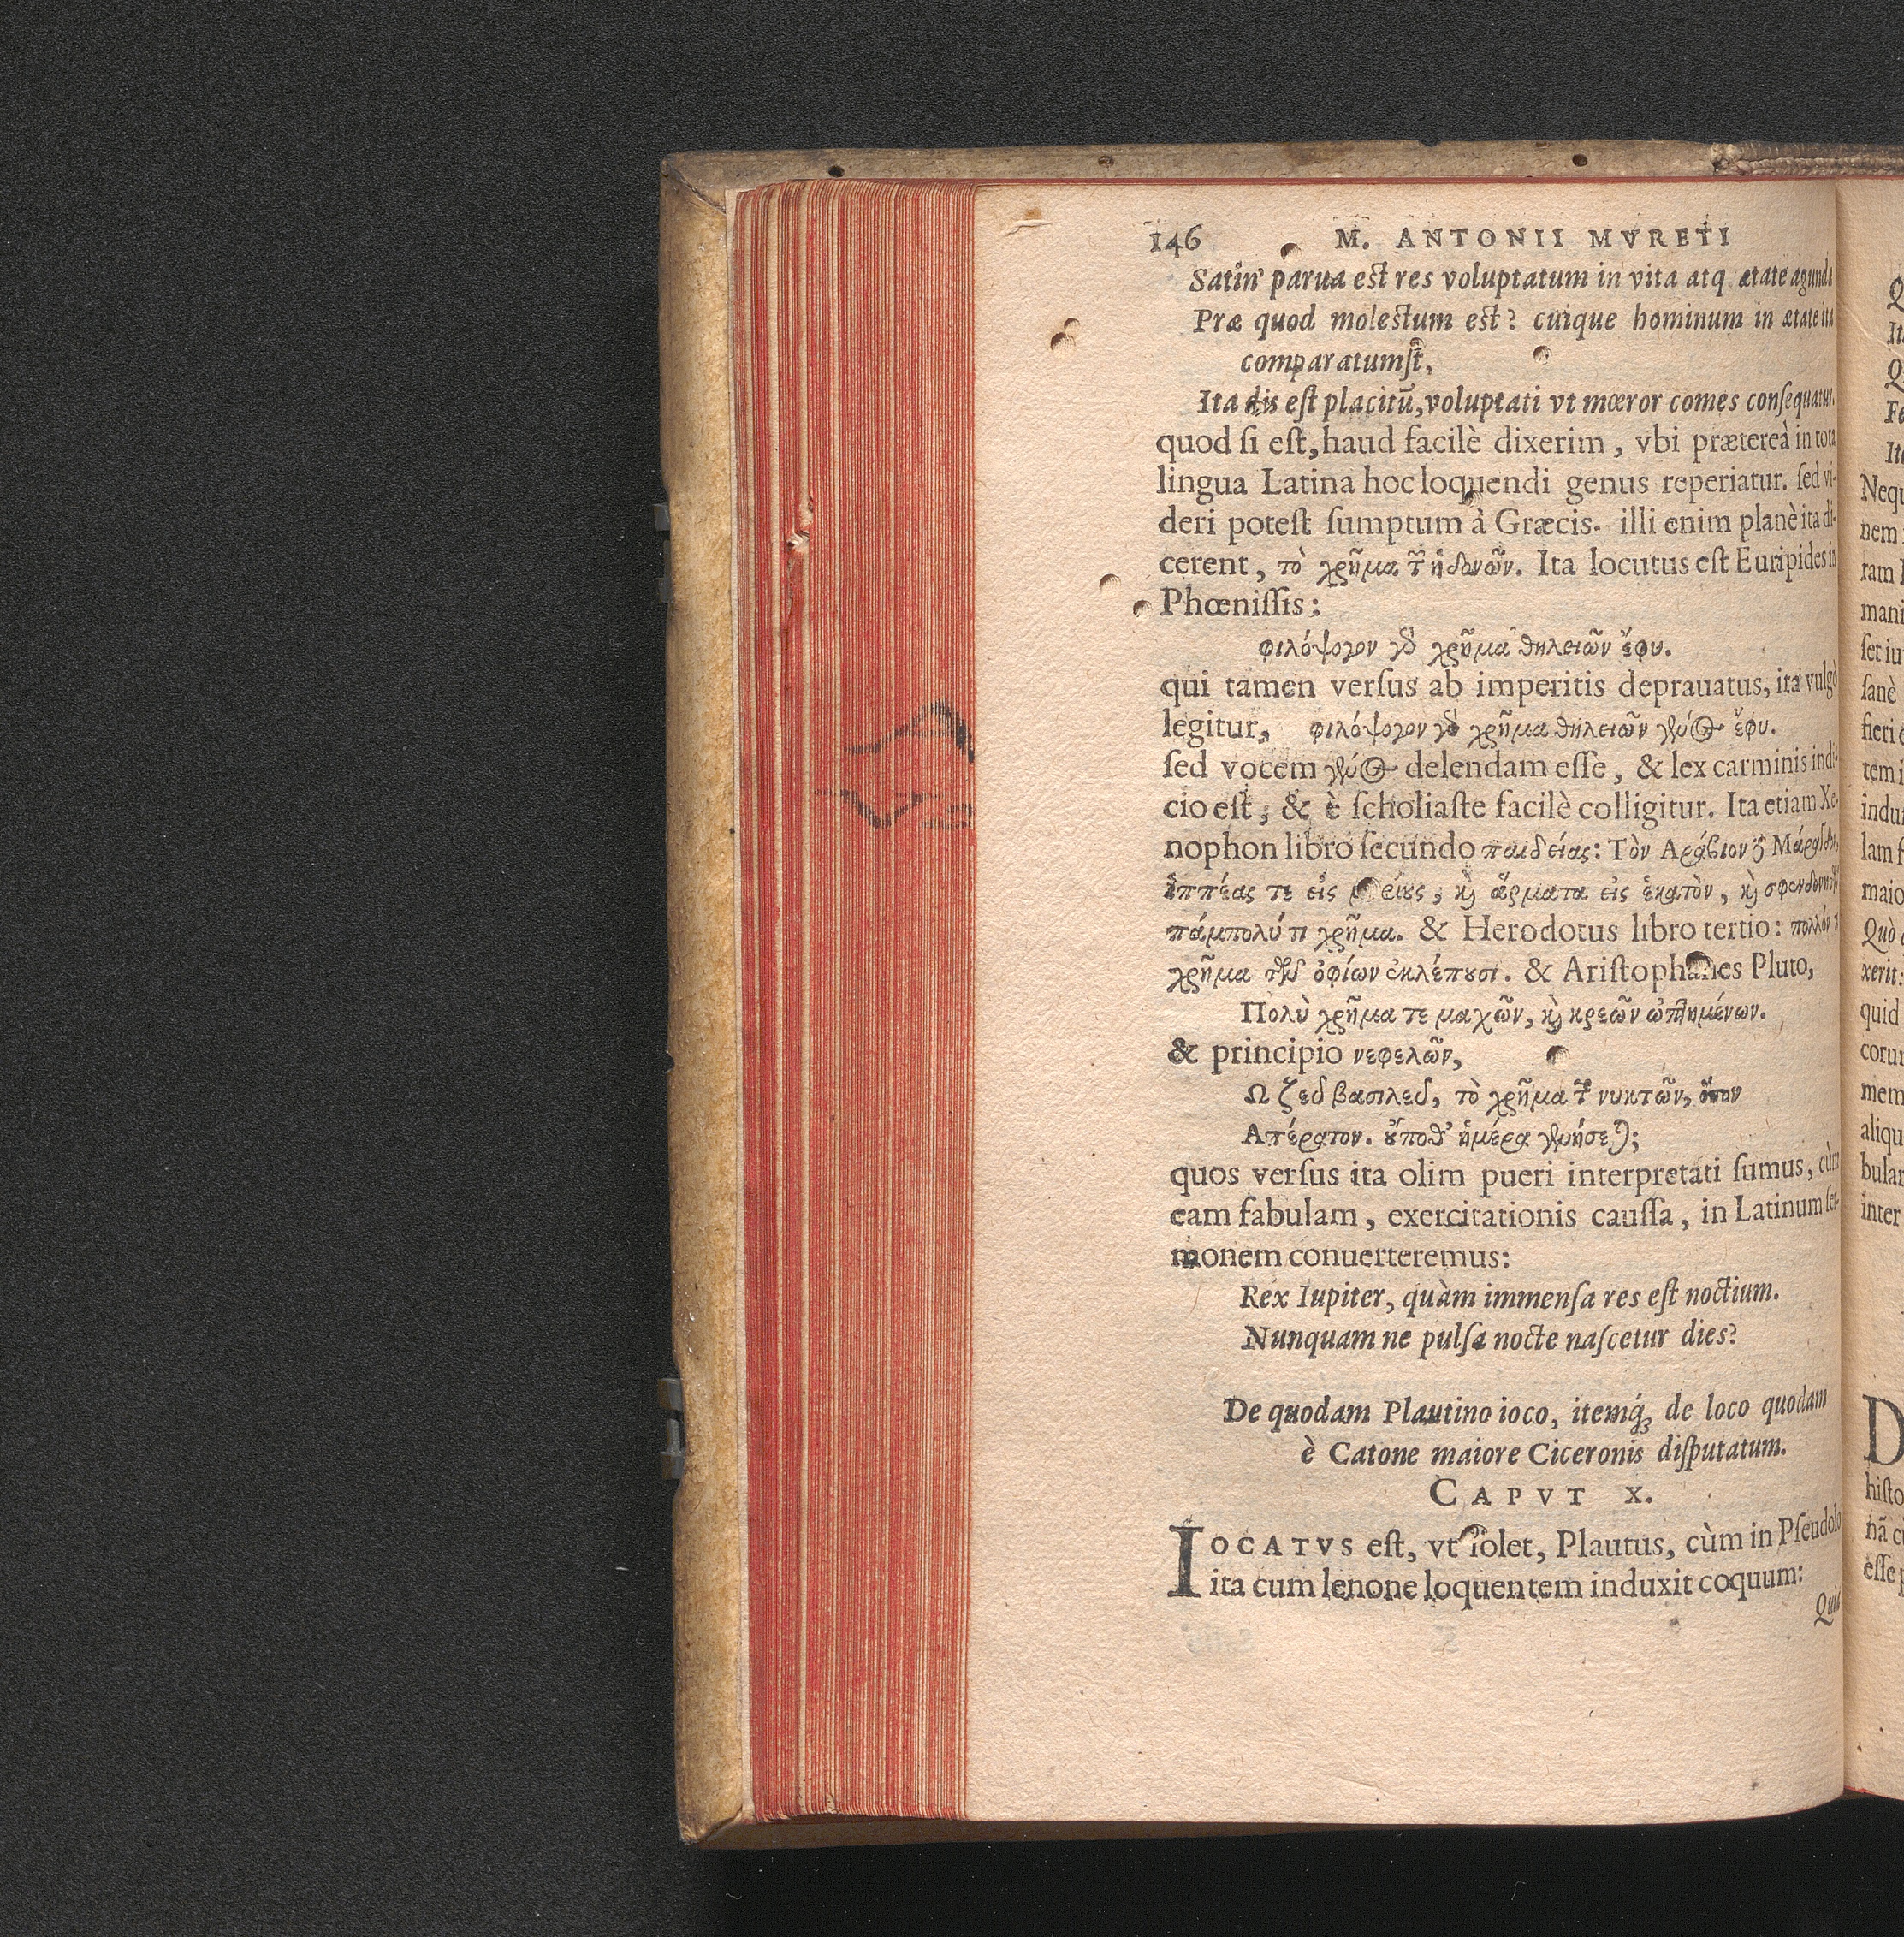 146 M. ANTONII MVRETI
Satin' parua est res voluptatum in vita atq ætate agunda
Præ quod molestum est? cuique hominum in ætate ita
comparatumst,
Ita dis est placitū, voluptati vt mœror comes consequatur.
quod si est, haud facilè dixerim, vbi prætereà in tota
lingua Latina hoc loquendi genus reperiatur. sed vi-
deri potest sumptum à Græcis. illi enim planè ita di-
cerent, τὸ χρῆμα τ῀ ἡδονῶν. Ita locutus est Euripides in
Phœnissis:
φιλόψογον γὰρ χρῆμα θηλειῶν ἔφυ.
qui tamen versus ab imperitis deprauatus, ita vulgò
legitur, φιλόψογον γὰρ χρῆμα θηλειῶν γένος ἔφυ.
sed vocem γένος delendam esse, & lex carminis indi-
cio est, & è scholiaste facilè colligitur. Ita etiam Xe-
nophon libro secundo παιδείας: Τὸν Αράβιον
ἱππέας τε εἰς καὶ ἅρματα εἰς ἑκατὸν, καὶ
πάμπολύ τι χρῆμα. & Herodotus libro tertio: πολλόν τι
χρῆμα τῶν ὀφίων ἐκλέπουσι. & Aristophanes Pluto,
Πολὺ χρῆμα τεμαχῶν, καὶ κρεῶν ὠπτημένων.
& principio νεφελῶν,
Ω ζεῦ βασιλεῦ, τὸ χρῆμα τ῀ νυκτῶν, ὅσον
Απέρατον. οὔποθ' ἡμέρα γενήσεται;
quos versus ita olim pueri interpretati sumus, cùm
eam fabulam, exercitationis caussa, in Latinum ser-
monem conuerteremus:
Rex Iupiter, quàm immensa res est noctium.
Nunquam ne pulsa nocte nascetur dies?
De quodam Plautino ioco, itemq́; de loco quodam
è Catone maiore Ciceronis disputatum.
CAPVT X.
IOCATVS est, vt solet, Plautus, cùm in Pseudolo
ita cum lenone loquentem induxit coquum:
Quia